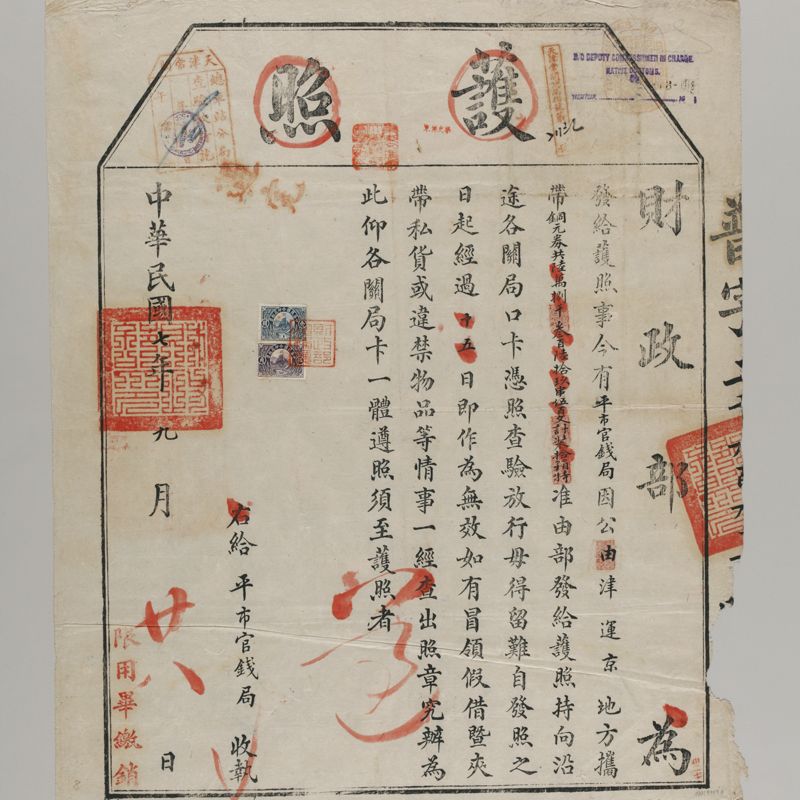 護照
財政部為
發給護照事今有平市官錢局因公由津運京地方攜
帶銅元券共陸萬捌千柒百陸拾玖串伍百文計柒拾箱特准由部發給護照持向沿
途各關局口卡憑照查驗放行毋得留難自發照之
日起經過十五日即作為無效如有冒領假借暨夾
帶私貨或違禁物品等情事一經查出照章究辦為
此仰各關局卡一體遵照須至護照者
右給平市官錢局收執
中華民國七年九月廿八日
限用畢繳銷
天津常
DEPUTY COMMISSIONER IN CHARGE.
NATIVE CUSTOMS.